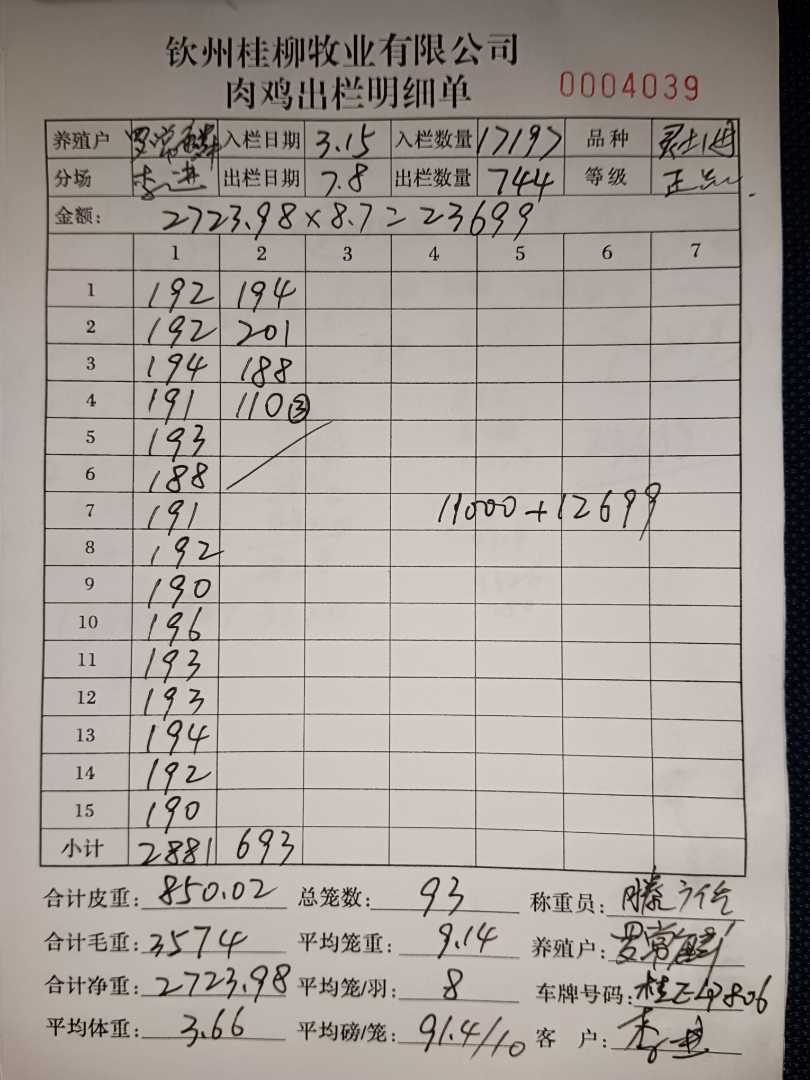 钦州桂柳牧业有限公司
肉鸡出栏明细单 0004039
养殖户 罗常麟 入栏日期 3.15 入栏数量 17197 品种
分场 李进 出栏日期 7.8 出栏数量 744 等级 正
金额: 2723.98×8.7=23699
1 2 3 4 5 6 7
1 192 194
2 192 201
3 194 188
4 191 110③
5 193
6 188
7 191 11000+12699
8 192
9 190
10 196
11 193
12 193
13 194
14 192
15 190
小计 2881 693
合计皮重: 850.02 总笼数: 93 称重员: 滕
合计毛重: 3574 平均笼重: 9.14 养殖户: 罗常麟
合计净重: 2723.98 平均笼/羽: 8 车牌号码: 桂
平均体重: 3.66 平均磅/笼: 91.4/10 客 户: 李进